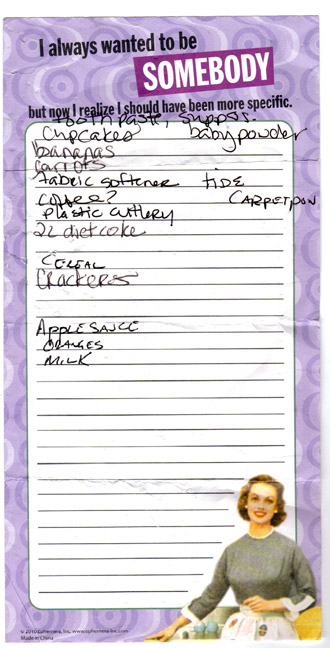 I always wanted to be
SOMEBODY
but now I realize I should have been more specific.
toothpaste, suppos.
Cupcakes babypowder
bananas
carrots
fabric softener TIDE
coffee? CARPET PON
Plastic cuttlery
2L diet coke
CEREAL
Crackers
APPLESAUCE
ORANGES
MILK
© 2010 Ephemera, Inc. www.ephemera-inc.com
Made in China